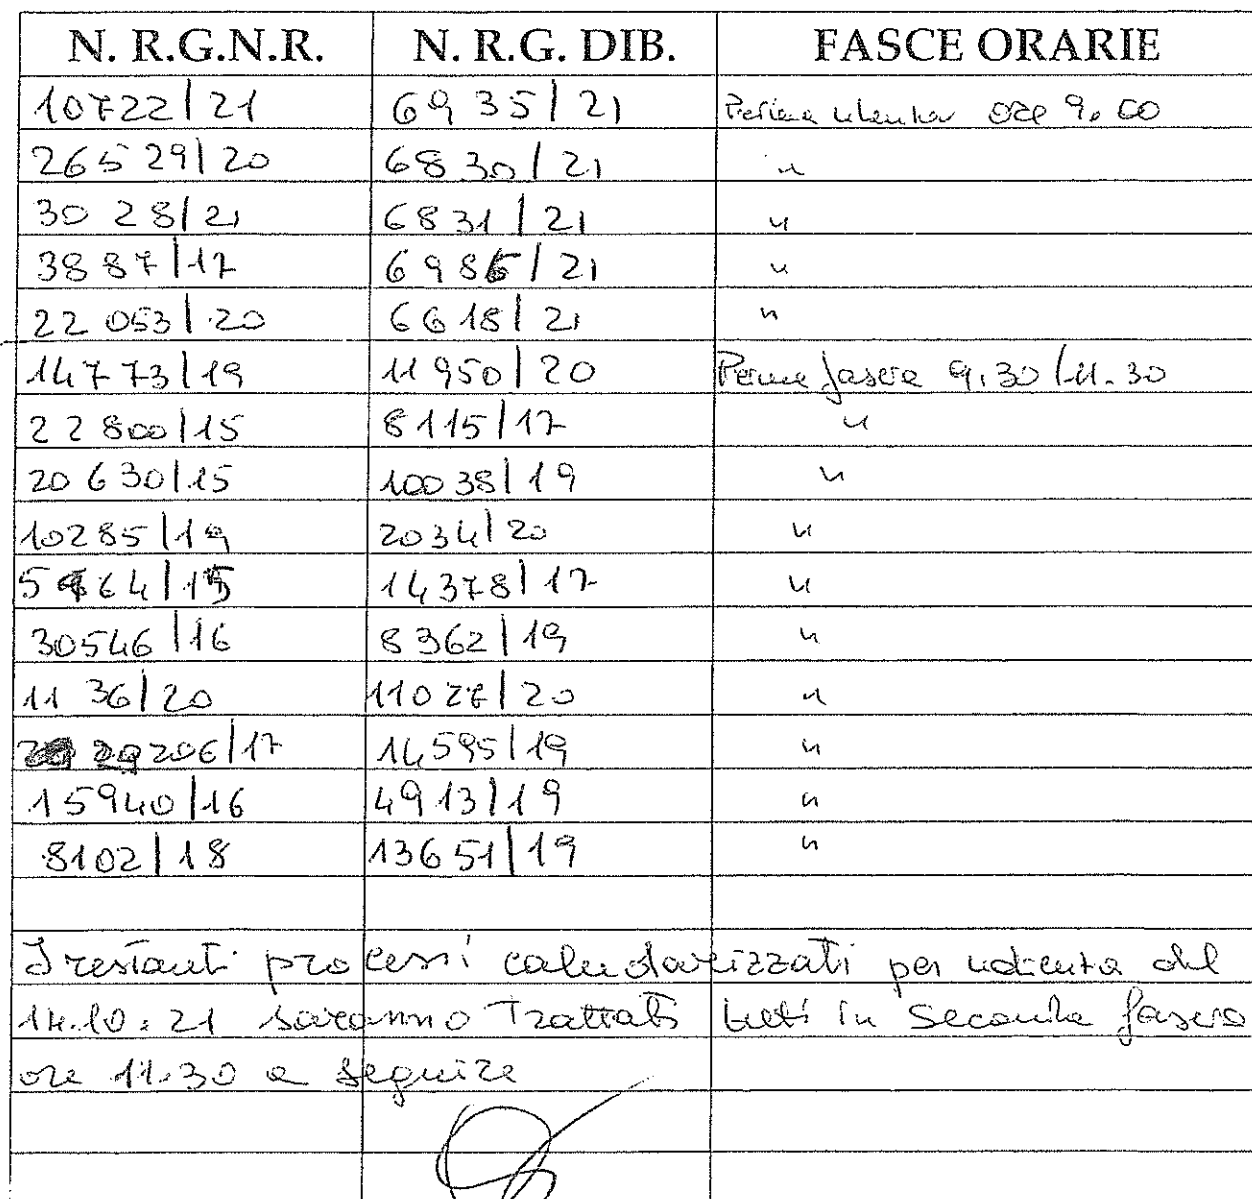 N. R.G.N.R. N. R.G. DIB. FASCE ORARIE
10722/21 6935/21 Prima udienza ore 9.00
26529/20 6830/21 "
3028/21 6831/21 "
3887/17 6985/21 "
22053/20 6618/21 "
14773/19 11950/20 Prima fascia 9.30/11.30
22800/15 8115/17 "
20630/15 10038/19 "
10285/19 2034/20 "
14378/17 "
30546/16 8362/19 "
1136/20 11027/20 "
14595/19 "
15940/16 4913/19 "
8102/18 13651/19 "
I restanti processi calendarizzati per udienza del
14.10.21 saranno Trattati tutti in seconda fascia
ore 11.30 a seguire